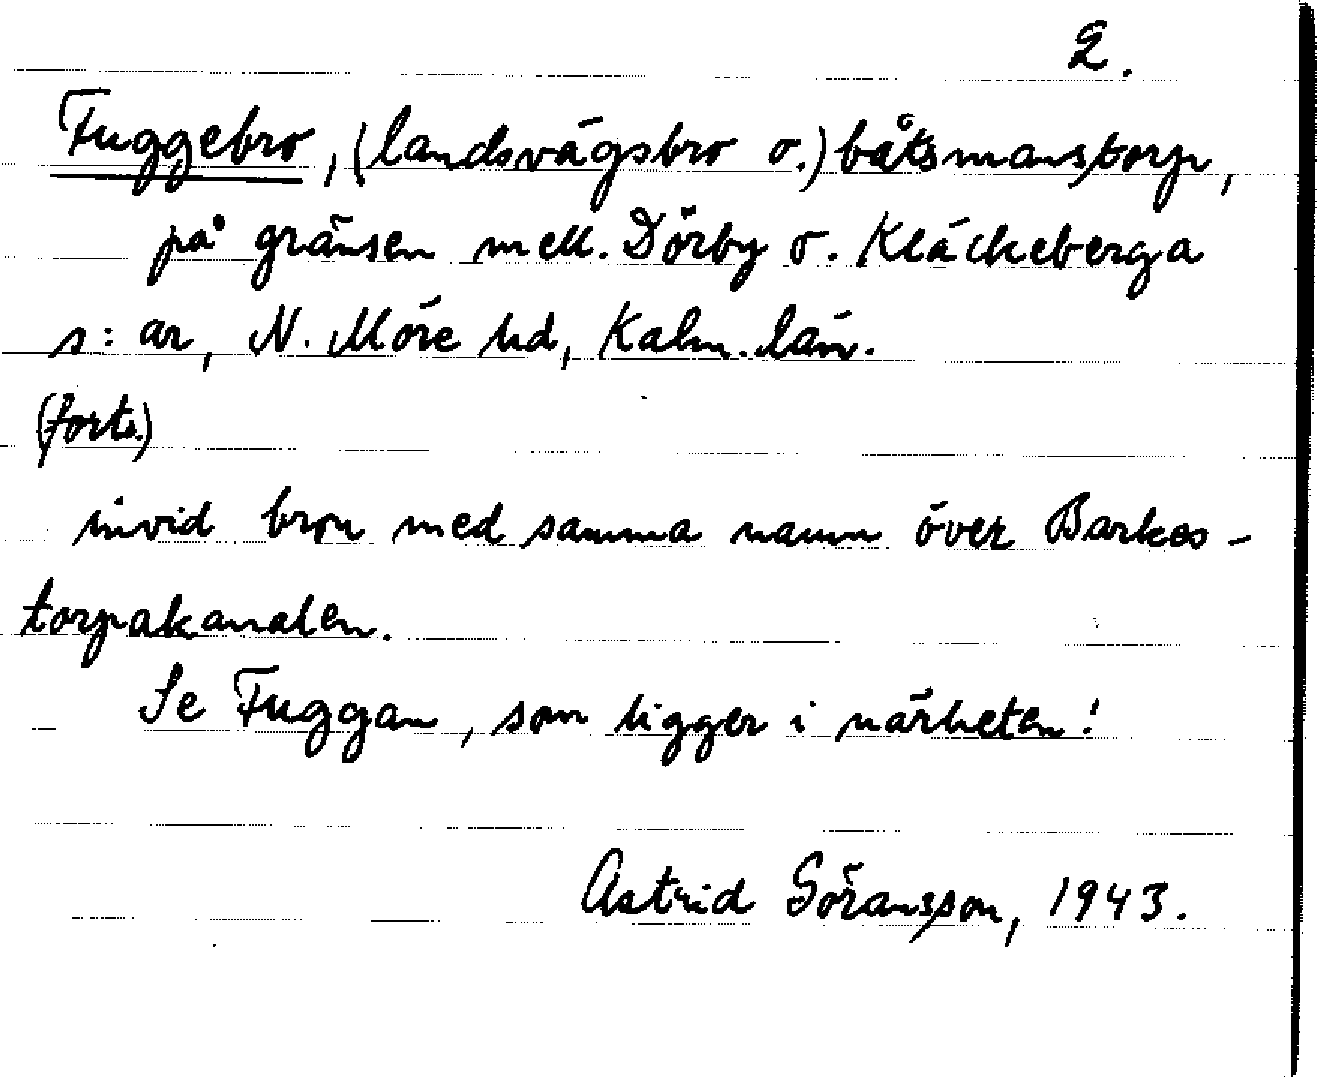 2.
Fuggebro, (landsvägsbro o.) båtsmanstorp,
på gränsen mell. Dörby o. Kläckeberga
s:ar, N. Möre hd, Kalm. län.
(forts.)
invid bron med samma namn över Barkes-
torpakanalen.
Se Fuggan, som ligger i närheten!
Astrid Göransson, 1943.